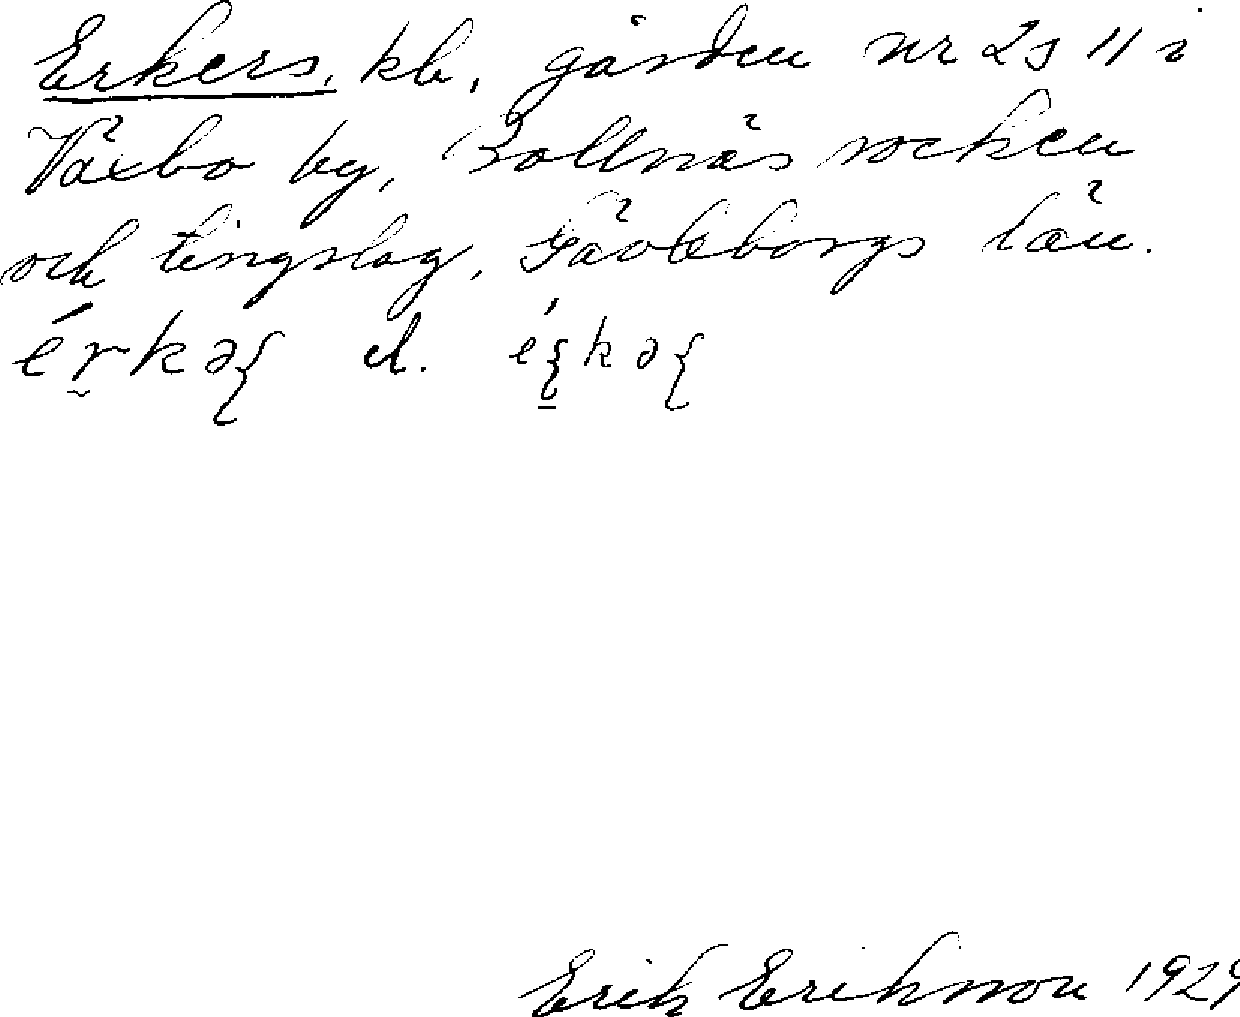 Erkers, kb, gården nr 2 s 11 i
Växbo by, Bollnäs socken
och tingslag, Gävleborgs län.
Erik Eriksson 1929